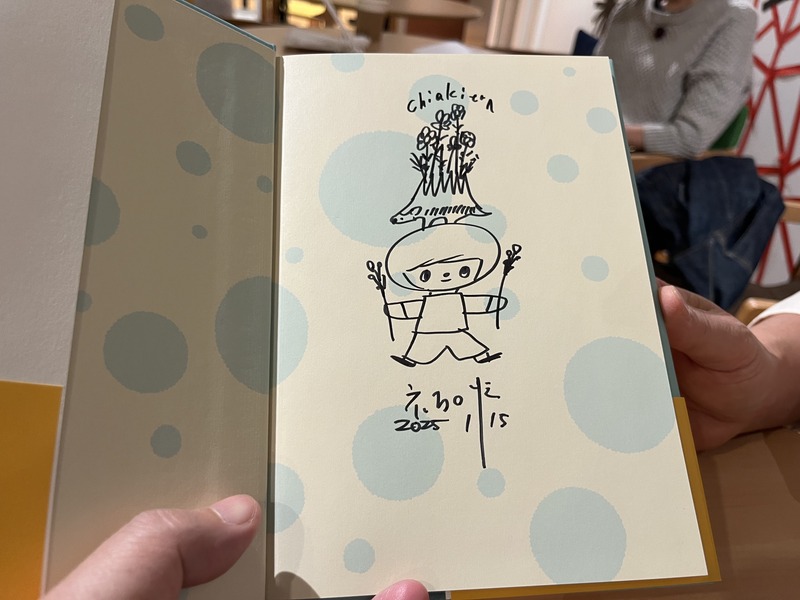 Chiakiさん
2025 1/15